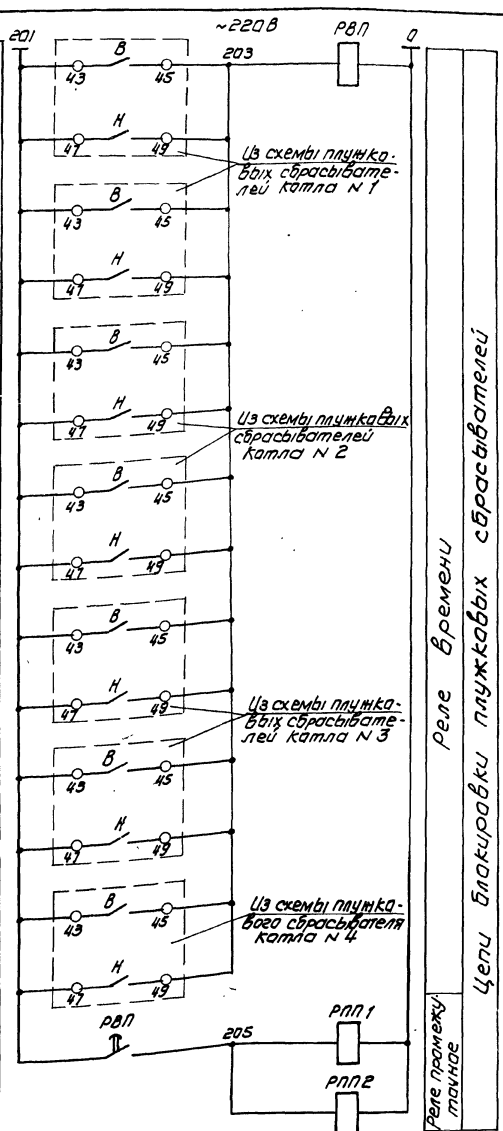 201
~220В
РВП
0
43
В
45
203
47
Н
49
Из схемы плужко-
вых сбрасывате-
лей котла N 1
43
В
45
47
Н
49
43
В
45
47
Н
49
Из схемы плужковых
сбрасывателей
котла N 2
43
В
45
47
Н
49
43
В
45
47
Н
49
Из схемы плужко-
вых сбрасывате-
лей котла N 3
43
В
45
47
Н
49
43
В
45
Из схемы плужко-
вого сбрасывателя
котла N 4
47
Н
49
РВП
205
РПП1
РПП2
Реле времени
Реле промежу-
точное
Цепи блокировки плужковых сбрасывателей